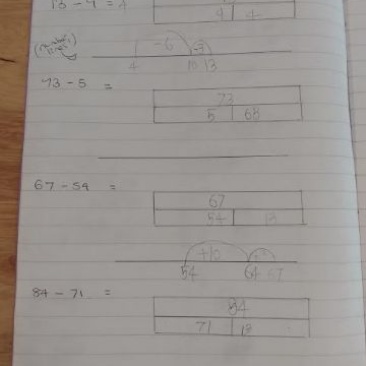 13 - 9 = 4
9 4
(Number lines)
-6 -3
4 10 13
73 - 5 =
73
5 68
67 - 54 =
67
54 13
+10
54 64 67
84 - 71 =
84
71 13